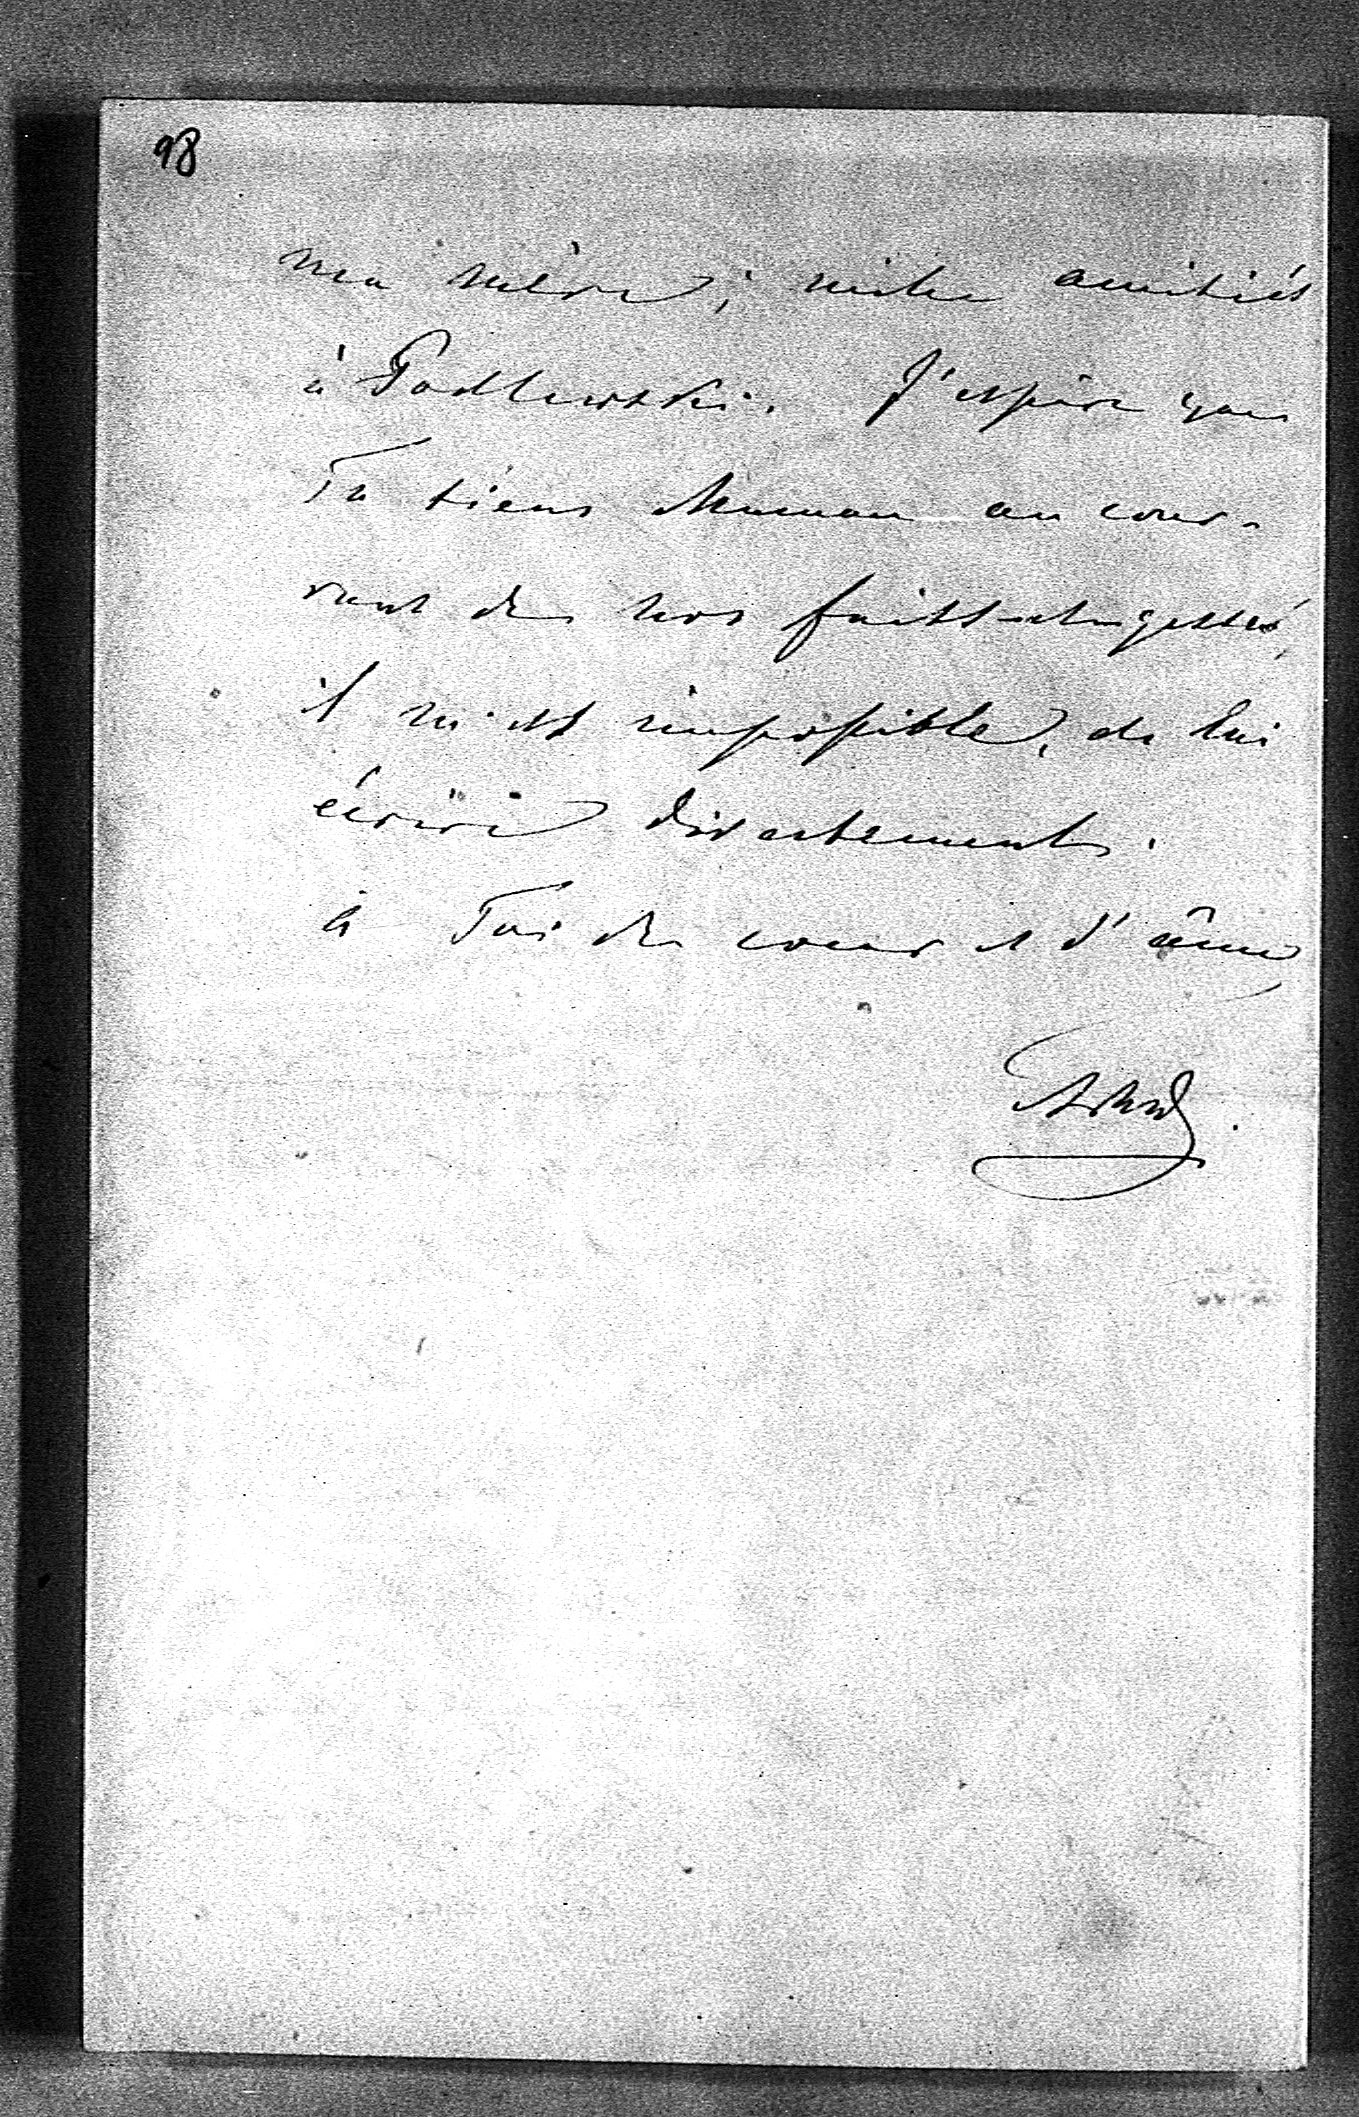 98
ma mère; mille amitiés
à Podlewski. J'espère que
Tu tiens Maman au cour-
rant de nos faits et gestes,
il m'est impossible, de lui
écrire directement.
à Toi de coeur et d'âme